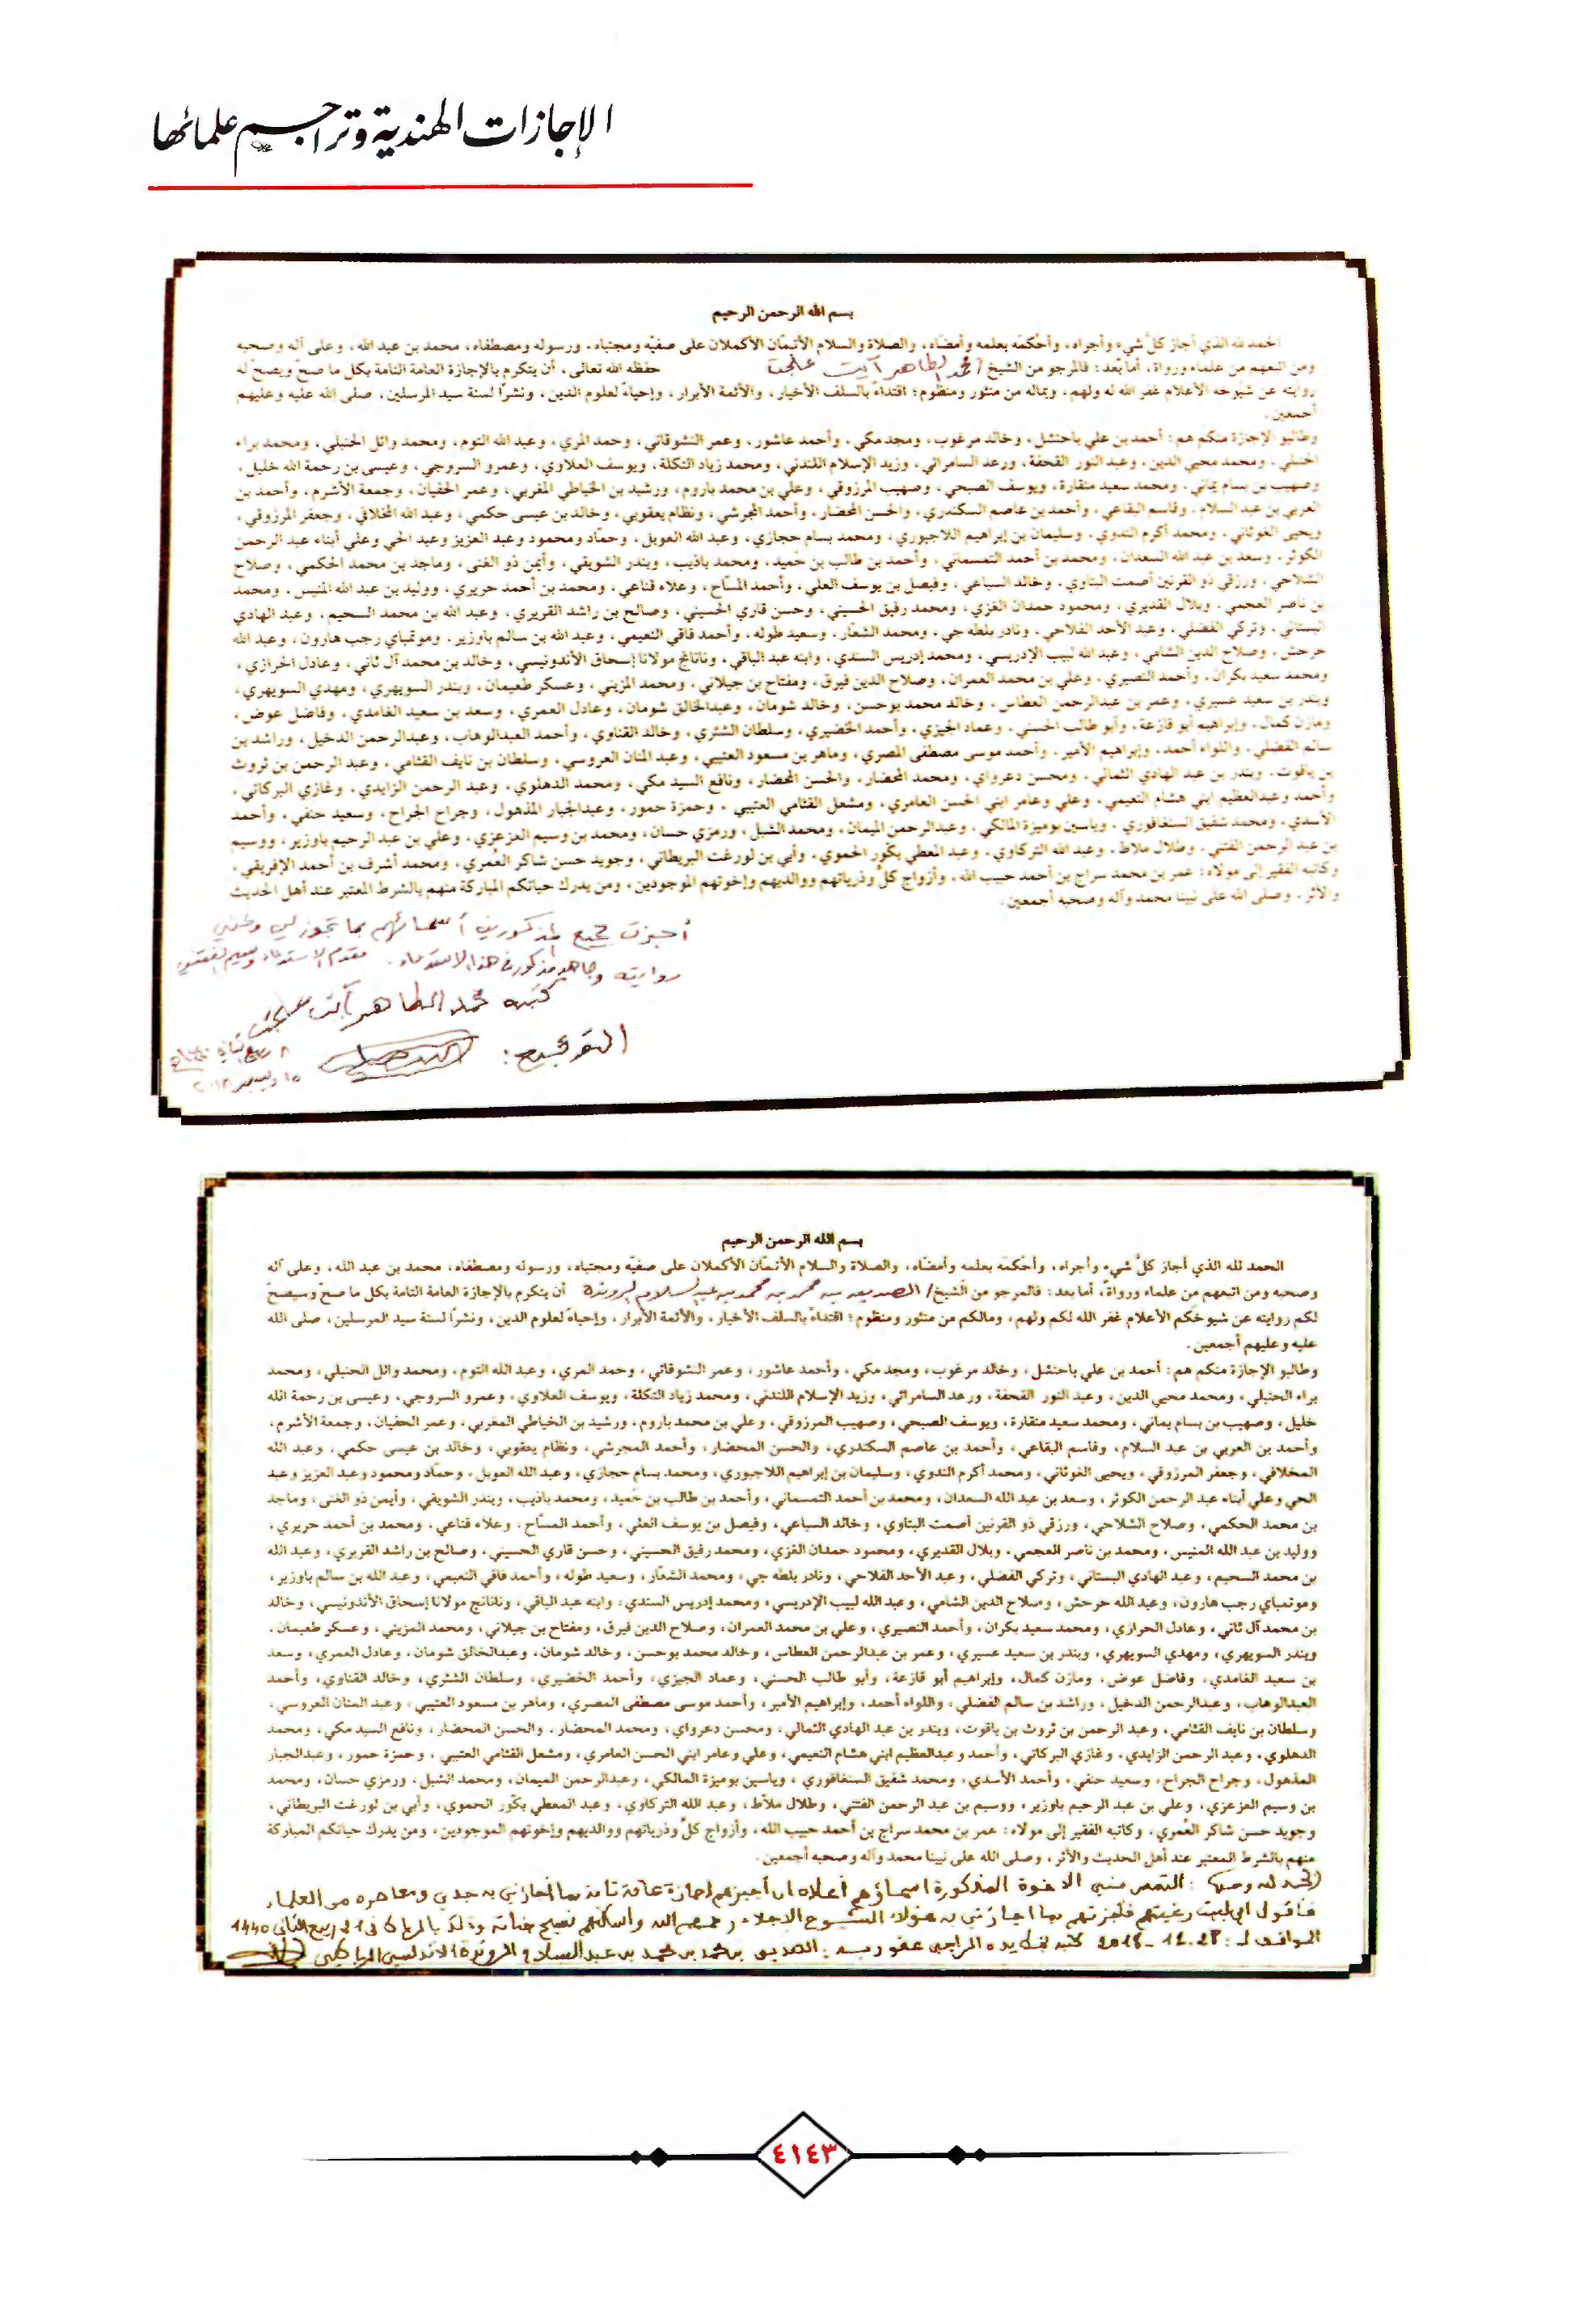 الإجازات الهندية وتراجم علمائها
بسم الله الرحمن الرحيم
الحمد لله الذي أجاز كلَّ شيء وأجراه، وأحْكمَه بعلمه وأمضاه، والصلاة والسلام الأتمّان الأكملان على صفيّه ومجتباه، ورسوله ومصطفاه، محمد بن عبد الله، وعلى آله وصحبه
ومن اتبعهم من علماء ورواة، أما بعد: فالمرجو من الشيخ / محمد الطاهر آيت علجت حفظه الله تعالى، أن يتكرم بالإجازة العامة التامة بكل ما صحّ ويصحّ له
روايته عن شيوخه الأعلام غفر الله له ولهم، وبماله من منثور ومنظوم؛ اقتداءً بالسلف الأخيار، والأئمة الأبرار، وإحياءً لعلوم الدين، ونشرًا لسنة سيد المرسلين، صلى الله عليه وعليهم
أجمعين.
وطالبو الإجازة منكم هم: أحمد بن علي باحنشل، وخالد مرغوب، ومجد مكي، وأحمد عاشور، وعمر النشوقاتي، وحمد المري، وعبد الله التوم، ومحمد وائل الحنبلي، ومحمد براء
الحنبلي، ومحمد محيي الدين، وعبد النور القحفة، ورعد السامرائي، وزيد الإسلام اللندني، ومحمد زياد التكلة، ويوسف العلاوي، وعمرو السروجي، وعيسى بن رحمة الله خليل،
وصهيب بن بسام يماني، ومحمد سعيد منقارة، ويوسف الصبحي، وصهيب المرزوقي، وعلي بن محمد باروم، ورشيد بن الخياطي المغربي، وعمر الحفيان، وجمعة الأشرم، وأحمد بن
العربي بن عبد السلام، وقاسم البقاعي، وأحمد بن عاصم السكندري، والحسن المحضار، وأحمد المجرشي، ونظام يعقوبي، وخالد بن عيسى حكمي، وعبد الله المخلافي، وجعفر المرزوقي،
ويحيى الغوثاني، ومحمد أكرم الندوي، وسليمان بن إبراهيم اللاجبوري، ومحمد بسام حجازي، وعبد الله العوبل، وحمّاد ومحمود وعبد العزيز وعبد الحي وعلي أبناء عبد الرحمن
الكوثر، وسعد بن عبد الله السعدان، ومحمد بن أحمد التمسماني، وأحمد بن طالب بن حَميد، ومحمد باذيب، وبندر الشويقي، وأيمن ذو الغنى، وماجد بن محمد الحكمي، وصلاح
الشلاحي، ورزقي ذو القرنين أصمت البتاوي، وخالد السباعي، وفيصل بن يوسف العلي، وأحمد المسّاح، وعلاء قناعي، ومحمد بن أحمد حريري، ووليد بن عبد الله المنيس، ومحمد
بن ناصر العجمي، وبلال القديري، ومحمود حمدان الغزي، ومحمد رفيق الحسيني، وحسن قاري الحسيني، وصالح بن راشد القريري، وعبد الله بن محمد السحيم، وعبد الهادي
البستاني، وتركي الفضلي، وعبد الأحد الفلاحي، ونادر بلطه جي، ومحمد الشعّار، وسعيد طوله، وأحمد فاقي النعيمي، وعبد الله بن سالم باوزير، وموتمباي رجب هارون، وعبد الله
حرحش، وصلاح الدين الشامي، وعبد الله لبيب الإدريسي، ومحمد إدريس السندي، وابنه عبد الباقي، وناناتج مولانا إسحاق الأندونيسي، وخالد بن محمد آل ثاني، وعادل الحرازي،
ومحمد سعيد بكران، وأحمد النصيري، وعلي بن محمد العمران، وصلاح الدين فيرق، ومفتاح بن جيلاني، ومحمد المزيني، وعسكر طعيمان، وبندر السويهري، ومهدي السويهري،
وبندر بن سعيد عسيري، وعمر بن عبدالرحمن العطاس، وخالد محمد بوحسن، وخالد شومان، وعبدالخالق شومان، وعادل العمري، وسعد بن سعيد الغامدي، وفاضل عوض،
ومازن كمال، وإبراهيم أبو قازعة، وأبو طالب الحسني، وعماد الجيزي، وأحمد الخضيري، وسلطان الشثري، وخالد القناوي، وأحمد العبدالوهاب، وعبدالرحمن الدخيل، وراشد بن
سالم الفضلي، واللواء أحمد، وإبراهيم الأمير، وأحمد موسى مصطفى المصري، وماهر بن مسعود العتيبي، وعبد المنان العروسي، وسلطان بن نايف القثامي، وعبد الرحمن بن ثروت
بن ياقوت، وبندر بن عبد الهادي الثمالي، ومحسن دعرواي، ومحمد المحضار، والحسن المحضار، ونافع السيد مكي، ومحمد الدهلوي، وعبد الرحمن الزايدي، وغازي البركاتي،
وأحمد وعبدالعظيم ابني هشام النعيمي، وعلي وعامر ابني الحسن العامري، ومشعل القثامي العتيبي، وحمزة حمور، وعبدالجبار المذهول، وجراح الجراح، وسعيد حنفي، وأحمد
الأسدي، ومحمد شفيق السنغافوري، وياسين بوميزة المالكي، وعبدالرحمن الميمان، ومحمد الشبل، ورمزي حسان، ومحمد بن وسيم العزعزي، وعلي بن عبد الرحيم باوزير، ووسيم
بن عبد الرحمن الفتني، وطلال ملاط، وعبد الله التركاوي، وعبد المعطي بكّور الحموي، وأبي بن لورغت البريطاني، وجويد حسن شاكر العُمري، ومحمد أشرف بن أحمد الإفريقي،
وكاتبه الفقير إلى مولاه: عمر بن محمد سراج بن أحمد حبيب الله، وأزواج كلٍّ وذرياتهم ووالديهم وإخوتهم الموجودين، ومن يدرك حياتكم المباركة منهم بالشرط المعتبر عند أهل الحديث
والأثر، وصلى الله على نبينا محمد وآله وصحبه أجمعين.
أجزت جميع المذكورين أسمائهم بما تجوز لي وعني
روايته المذكور في هذا الاستدعاء. مقدم الاستدعاء وسيم
كتبه محمد الطاهر آيت علجت
التوقيع:
٨ ربيع الثاني
١٥ ديسمبر ٢٠١٨
بسم الله الرحمن الرحيم
الحمد لله الذي أجاز كلَّ شيء وأجراه، وأحْكمَه بعلمه وأمضاه، والصلاة والسلام الأتمّان الأكملان على صفيّه ومجتباه، ورسوله ومصطفاه، محمد بن عبد الله، وعلى آله
وصحبه ومن اتبعهم من علماء ورواة، أما بعد: فالمرجو من الشيخ/ الصديق بن محمد بن محمد بن عبد السلام الروندة أن يتكرم بالإجازة العامة التامة بكل ما صحّ وسيصحّ
لكم روايته عن شيوخكم الأعلام غفر الله لكم ولهم، ومالكم من منثور ومنظوم؛ اقتداءً بالسلف الأخيار، والأئمة الأبرار، وإحياءً لعلوم الدين، ونشرًا لسنة سيد المرسلين، صلى الله
عليه وعليهم أجمعين.
وطالبو الإجازة منكم هم: أحمد بن علي باحنشل، وخالد مرغوب، ومجد مكي، وأحمد عاشور، وعمر النشوقاتي، وحمد المري، وعبد الله التوم، ومحمد وائل الحنبلي، ومحمد
براء الحنبلي، ومحمد محيي الدين، وعبد النور القحفة، ورعد السامرائي، وزيد الإسلام اللندني، ومحمد زياد التكلة، ويوسف العلاوي، وعمرو السروجي، وعيسى بن رحمة الله
خليل، وصهيب بن بسام يماني، ومحمد سعيد منقارة، ويوسف الصبحي، وصهيب المرزوقي، وعلي بن محمد باروم، ورشيد بن الخياطي المغربي، وعمر الحفيان، وجمعة الأشرم،
وأحمد بن العربي بن عبد السلام، وقاسم البقاعي، وأحمد بن عاصم السكندري، والحسن المحضار، وأحمد المجرشي، ونظام يعقوبي، وخالد بن عيسى حكمي، وعبد الله
المخلافي، وجعفر المرزوقي، ويحيى الغوثاني، ومحمد أكرم الندوي، وسليمان بن إبراهيم اللاجبوري، ومحمد بسام حجازي، وعبد الله العوبل، وحمّاد ومحمود وعبد العزيز وعبد
الحي وعلي أبناء عبد الرحمن الكوثر، وسعد بن عبد الله السعدان، ومحمد بن أحمد التمسماني، وأحمد بن طالب بن حَميد، ومحمد باذيب، وبندر الشويقي، وأيمن ذو الغنى، وماجد
بن محمد الحكمي، وصلاح الشلاحي، ورزقي ذو القرنين أصمت البتاوي، وخالد السباعي، وفيصل بن يوسف العلي، وأحمد المسّاح، وعلاء قناعي، ومحمد بن أحمد حريري،
ووليد بن عبد الله المنيس، ومحمد بن ناصر العجمي، وبلال القديري، ومحمود حمدان الغزي، ومحمد رفيق الحسيني، وحسن قاري الحسيني، وصالح بن راشد القريري، وعبد الله
بن محمد السحيم، وعبد الهادي البستاني، وتركي الفضلي، وعبد الأحد الفلاحي، ونادر بلطه جي، ومحمد الشعّار، وسعيد طوله، وأحمد فاقي النعيمي، وعبد الله بن سالم باوزير،
وموتمباي رجب هارون، وعبد الله حرحش، وصلاح الدين الشامي، وعبد الله لبيب الإدريسي، ومحمد إدريس السندي، وابنه عبد الباقي، وناناتج مولانا إسحاق الأندونيسي، وخالد
بن محمد آل ثاني، وعادل الحرازي، ومحمد سعيد بكران، وأحمد النصيري، وعلي بن محمد العمران، وصلاح الدين فيرق، ومفتاح بن جيلاني، ومحمد المزيني، وعسكر طعيمان،
وبندر السويهري، ومهدي السويهري، وبندر بن سعيد عسيري، وعمر بن عبدالرحمن العطاس، وخالد محمد بوحسن، وخالد شومان، وعبدالخالق شومان، وعادل العمري، وسعد
بن سعيد الغامدي، وفاضل عوض، ومازن كمال، وإبراهيم أبو قازعة، وأبو طالب الحسني، وعماد الجيزي، وأحمد الخضيري، وسلطان الشثري، وخالد القناوي، وأحمد
العبدالوهاب، وعبدالرحمن الدخيل، وراشد بن سالم الفضلي، واللواء أحمد، وإبراهيم الأمير، وأحمد موسى مصطفى المصري، وماهر بن مسعود العتيبي، وعبد المنان العروسي،
وسلطان بن نايف القثامي، وعبد الرحمن بن ثروت بن ياقوت، وبندر بن عبد الهادي الثمالي، ومحسن دعرواي، ومحمد المحضار، والحسن المحضار، ونافع السيد مكي، ومحمد
الدهلوي، وعبد الرحمن الزايدي، وغازي البركاتي، وأحمد وعبدالعظيم ابني هشام النعيمي، وعلي وعامر ابني الحسن العامري، ومشعل القثامي العتيبي، وحمزة حمور، وعبدالجبار
المذهول، وجراح الجراح، وسعيد حنفي، وأحمد الأسدي، ومحمد شفيق السنغافوري، وياسين بوميزة المالكي، وعبدالرحمن الميمان، ومحمد الشبل، ورمزي حسان، ومحمد
بن وسيم العزعزي، وعلي بن عبد الرحيم باوزير، ووسيم بن عبد الرحمن الفتني، وطلال ملاّط، وعبد الله التركاوي، وعبد المعطي بكّور الحموي، وأبي بن لورغت البريطاني،
وجويد حسن شاكر العُمري، وكاتبه الفقير إلى مولاه: عمر بن محمد سراج بن أحمد حبيب الله، وأزواج كلٍّ وذرياتهم ووالديهم وإخوتهم الموجودين، ومن يدرك حياتكم المباركة
منهم بالشرط المعتبر عند أهل الحديث والأثر، وصلى الله على نبينا محمد وآله وصحبه أجمعين.
الحمد لله وحده: التمس مني الاخوة المذكورة اسماؤهم أعلاه ان أجيزهم إجازة عامة تامة بما أجازني به جدي ومعاصره من العلماء
فأقول اني لبيت رغبتهم فأجزتهم بما اجازني به هؤلاء الشيوخ الاجلاء رحمهم الله وأسكنهم فسيح جناته وذلك بالرباط في ربيع الثاني 1440
الموافق لـ: 28-12-2018 كتبه بيده الراجي عفو ربه: الصديق بن محمد بن محمد بن عبد السلام الروندة الاندلسي الرباطي
٤١٤٣